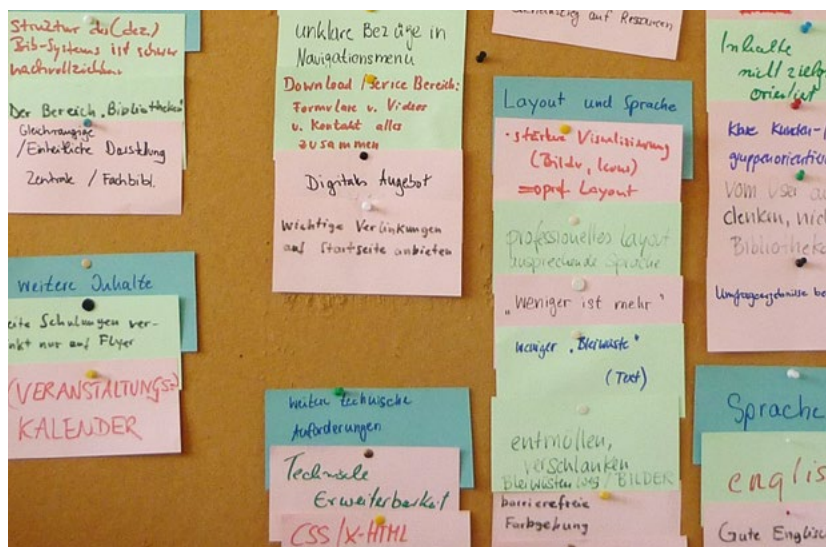 Struktur des (dez.)
Bib-Systems ist schwer
nachvollziehbar
Der Bereich „Bibliotheken"
Gleichrangige
/Einheitliche Darstellung
Zentrale / Fachbibl.
weitere Inhalte
Schulungen ver-
nur auf Flyer
(VERANSTALTUNGS-)
KALENDER
unklare Bezüge in
Navigationsmenü
Download / Service Bereich:
Formulare u. Videos
u. Kontakt alles
zusammen
Digitales Angebot
wichtige Verlinkungen
auf Startseite anbieten
weitere technische
Anforderungen
Technische
Erweiterbarkeit
CSS / X-HTML
auf Ressourcen
Layout und Sprache
- stärkere Visualisierung
(Bilder, Icons)
Layout
professionelles Layout
ansprechende Sprache
„weniger ist mehr"
weniger „Bleiwüste"
(Text)
entmüllen,
verschlanken
Bleiwüsten weg / BILDER
barrierefreie
Farbgebung
Inhalte
nicht
orientiert
Klare Kunden-
gruppenorientie
Vom User au
denken, nic
Bibliotheka
Umfrageergebnisse be
Sprache
englis
Gute Englisc